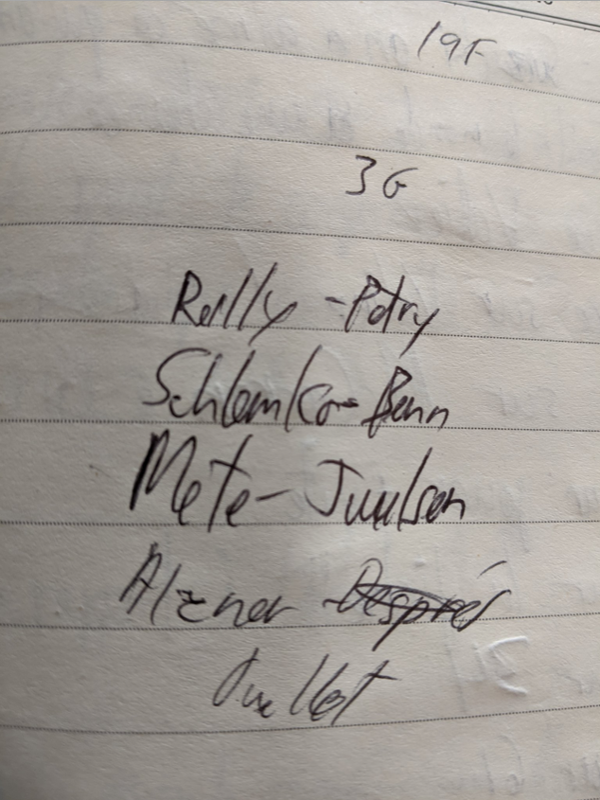 19F
3G
Reilly - Petry
Schlemko - Benn
Mete - Juulsen
Alzner - Després
Ouellet